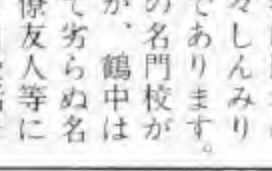 々しんみり
であります。
の名門校が
が、鶴中は
て劣らぬ名
僚友人等に